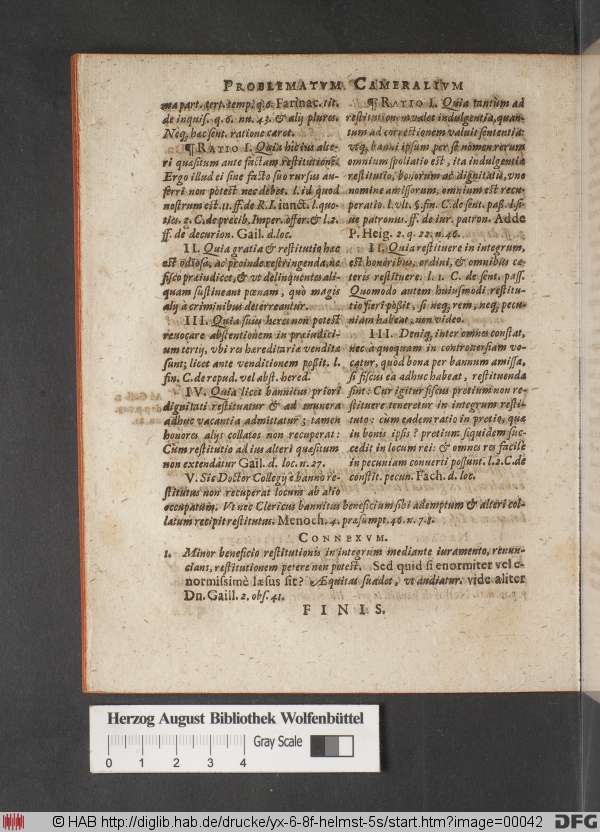 PROBLEMATVM CAMERALIVM
ma part. tert. temp. q. 6. Farinac. tit.
de inquis. q. 6. nu. 43. & alij plures.
Neq; hæc sent. ratione caret.
¶ RATIO I. Quia hic ius alte-
ri quæsitum ante factam restitutionē.
Ergo illud ei sine facto suo rursus au-
ferri non potest nec debet. l. id quod
nostrum est. 11. ff. de R. I. iunct. l. quo-
ties. 2. C. de precib. Imper. offer. & l. 2.
ff. de decurion. Gail. d. loc.
II. Quia gratia & restitutio hæc
est odiosa, ac proinde restringenda, ne
fisco præiudicet, & vt delinquentes ali-
quam sustineant pœnam, quò magis
alij à criminibus deterreantur.
III. Quia suus heres non potest
reuocare abstentionem in præiudici-
um tertij, vbi res hereditariæ venditæ
sunt; licet ante venditionem possit. l.
fin. C. de repud. vel abst. hered.
IV. Quia licet bannitus priori
dignitati restituatur & ad munera
adhuc vacantia admittatur; tamen
honores alijs collatos non recuperat:
Cùm restitutio ad ius alteri quæsitum
non extendatur Gail. d. loc. n. 27.
V. Sic Doctor Collegij è banno re-
stitutus non recuperat locum ab alio
¶ RATIO I. Quia tantùm ad
restitutionem valet indulgentia, quan-
tum ad correctionem valuit sententia:
vtq; banni ipsum per se nomen rerum
omnium spoliatio est, ita indulgentiæ
restitutio, bonorum ac dignitatis, vno
nomine amissorum, omnium est recu-
peratio. l. vlt. §. fin. C. de sent. pass. l. si-
ue patronus. ff. de iur. patron. Adde
P. Heig. 2. q. 22. n. 46.
II. Quia restituere in integrum,
est honoribus, ordini, & omnibus cæ-
teris restituere. l. 1. C. de sent. pass.
Quomodo autem huiusmodi restitu-
tio fieri possit, si neq; rem, neq; pecu-
niam habeat, non video.
III. Deniq; inter omnes constat,
nec à quoquam in controuersiam vo-
catur, quòd bona per bannum amissa,
si fiscus ea adhuc habeat, restituenda
sint: Cur igitur fiscus pretium non re-
stituere teneretur in integrum resti-
tuto: cùm eadem ratio in pretio, quæ
in bonis ipsis? pretium siquidem suc-
cedit in locum rei: & omnes res facilè
in pecuniam conuerti possunt. l. 2. C. de
constit. pecun. Fach. d. loc.
occupatum. Vt nec Clericus bannitus beneficium sibi ademptum & alteri col-
latum recipit restitutus. Menoch. 4. præsumpt. 46. n. 7. 8.
CONNEXVM.
1. Minor beneficio restitutionis in integrum mediante iuramento, renun-
cians, restitutionem petere non potest. Sed quid si enormiter vel e-
normissimè læsus sit? Æquitas suadet, vt audiatur. vide aliter
Dn. Gaill. 2. obs. 41.
FINIS.
Herzog August Bibliothek Wolfenbüttel
0 1 2 3 4
Gray Scale
© HAB http://diglib.hab.de/drucke/yx-6-8f-helmst-5s/start.htm?image=00042
DFG